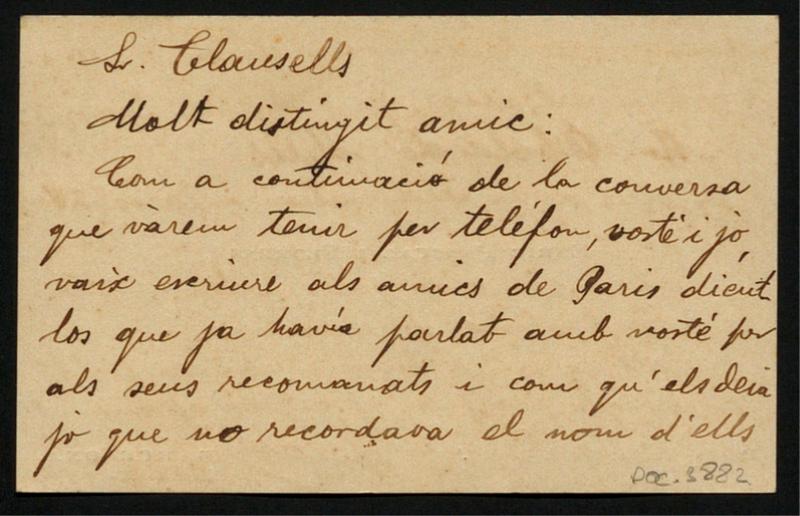 Sr. Clausells
Molt distingit amic:
Com a continuació de la conversa
que vàrem tenir per telèfon, vostè i jò,
vaix escriure als amics de Paris dient
los que ja havía parlat amb vosté per
als seus recomanats i com qu'els deia
jo que no recordava el nom d'ells
Doc. 3882